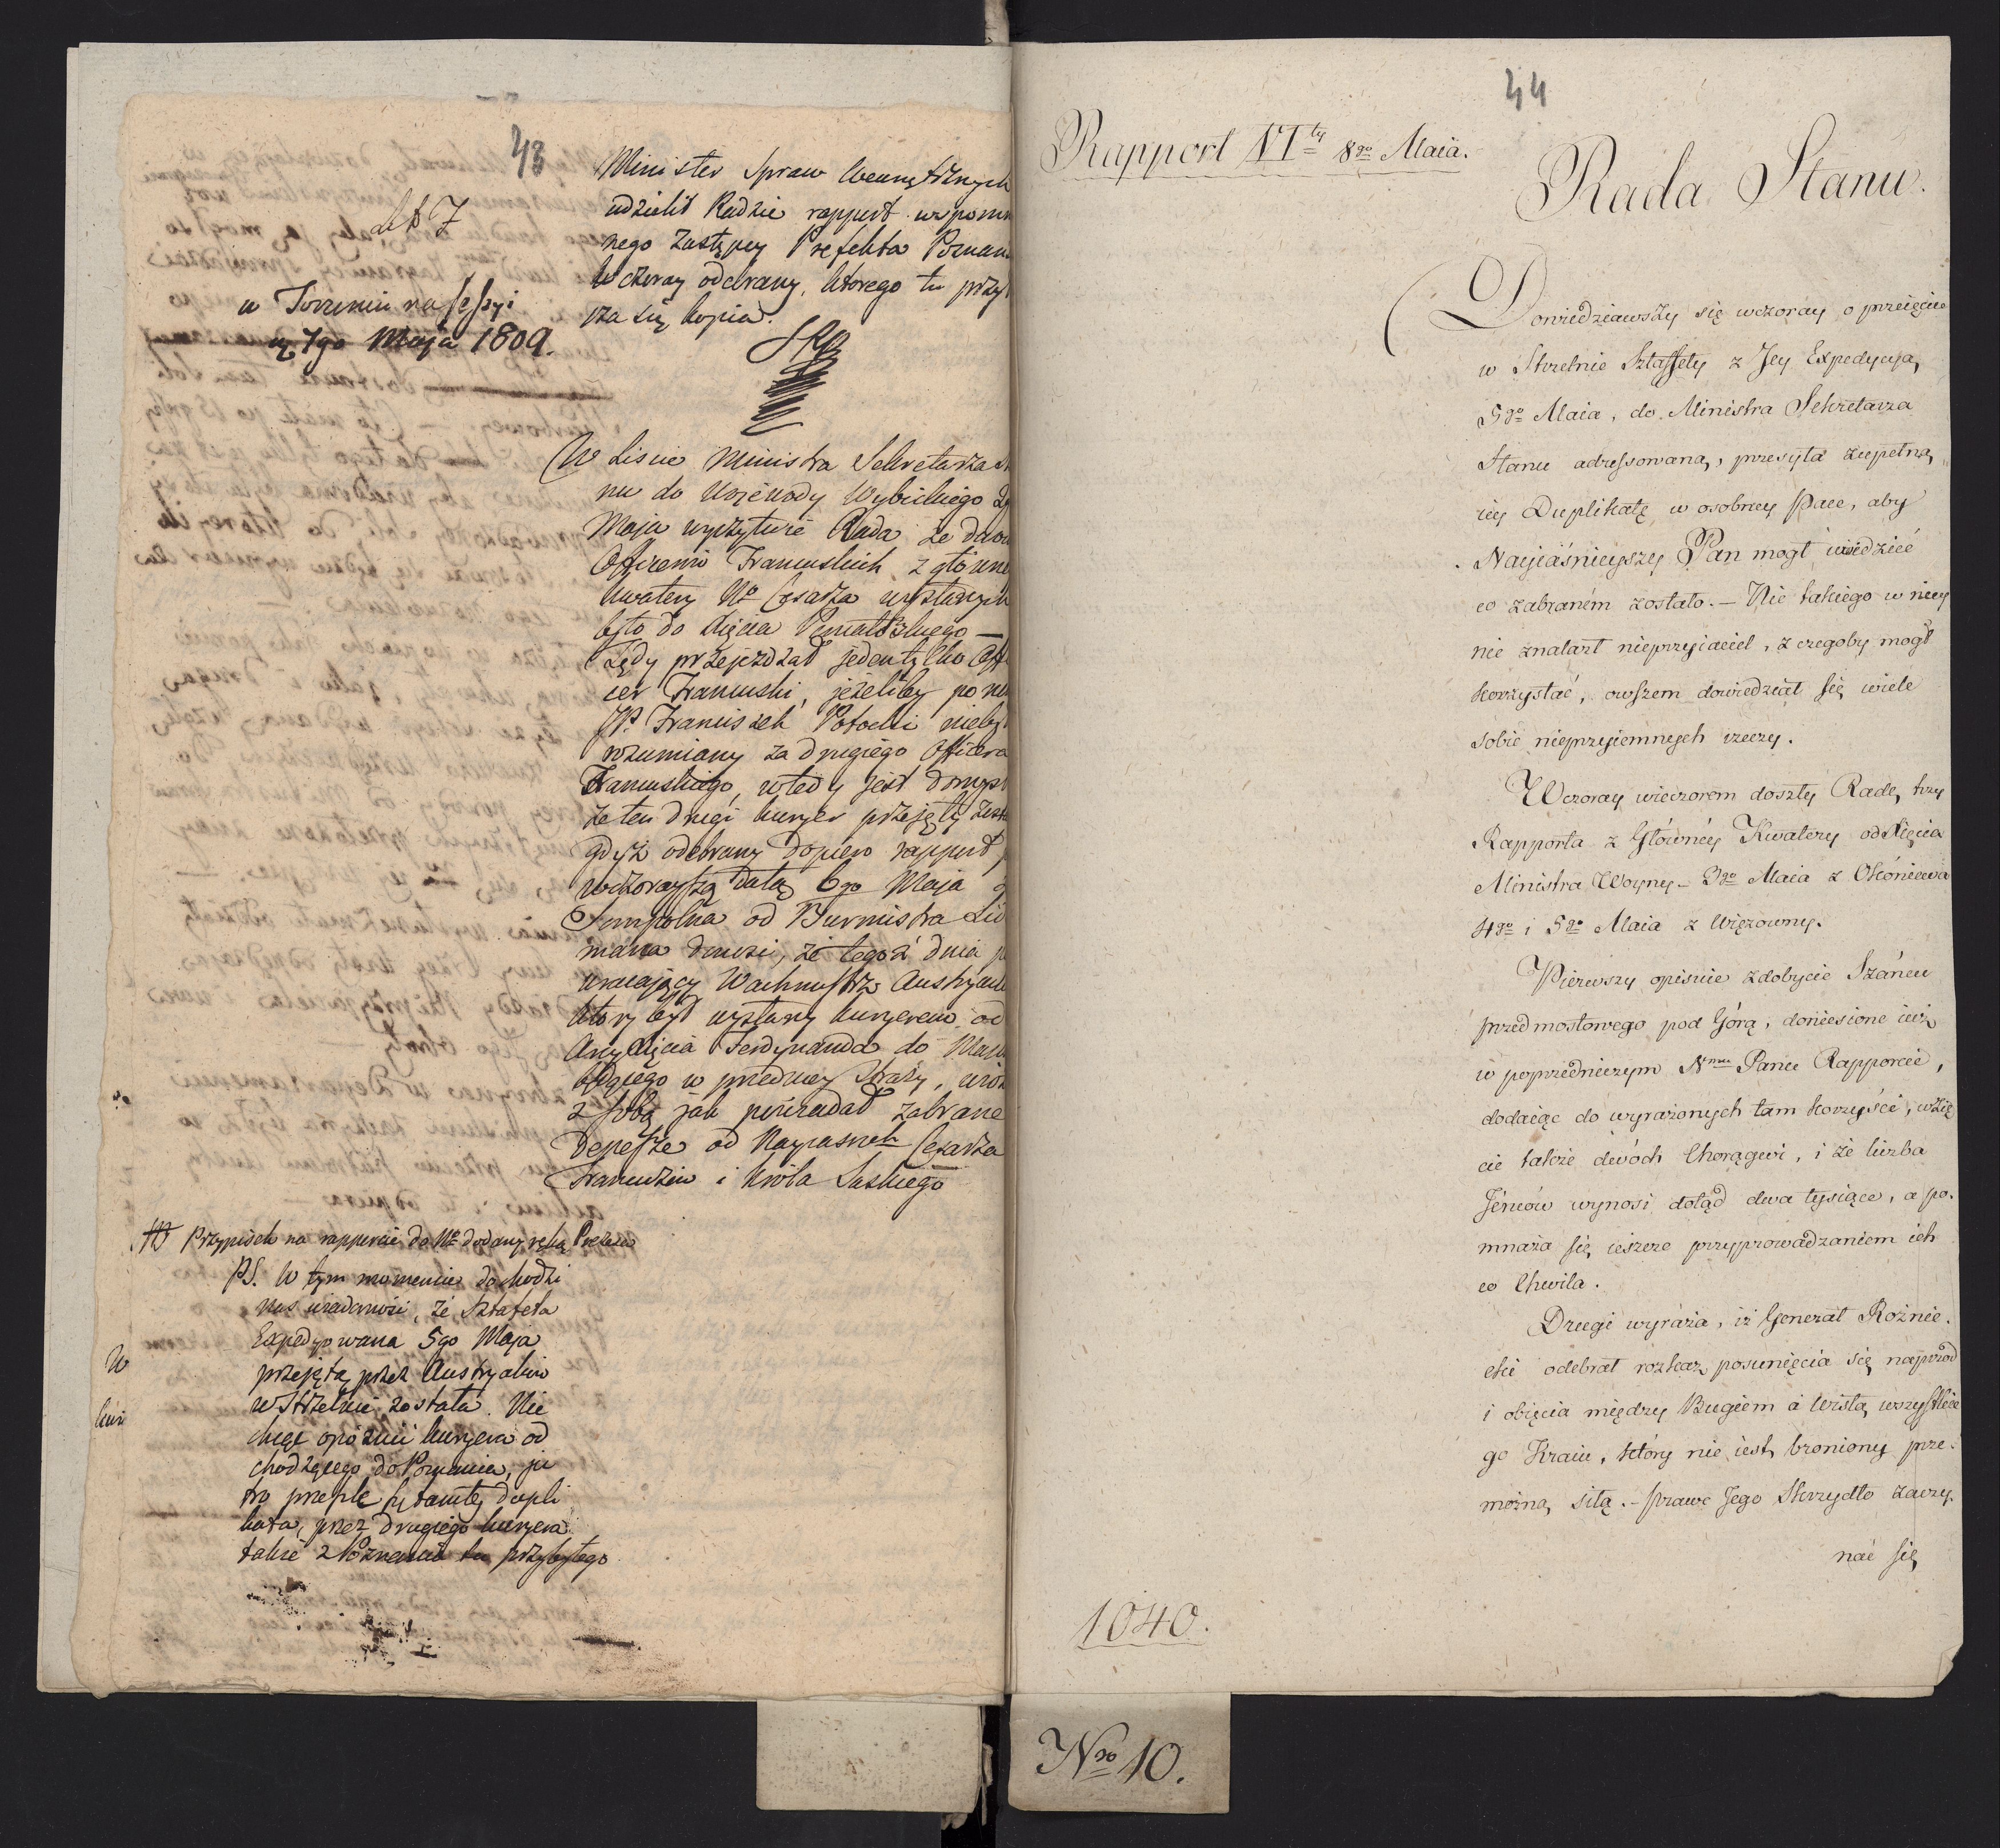 43
Lit J
w Toruniu na sessyi
7go Maja 1809.
Minister Spraw Wewnętrznych
udzielił Radzie rapport wspom
nego Zastępcy Prefekta Poznan
wczoray odebrany, którego tu przy
cza się kopia.
W Liście Ministra Sekretarza
nu do Wojewody Wybickiego
Maja wyczytuie Rada, że dwóch
Officerów Francuskich, z główney
kwatery No Cesarza wysłanych
było do Xięcia Poniatowskiego —
Tędy przejeżdżał jeden tylko Offi
cer Francuski, jeżeliby po nim
JP. Franciszek Potocki nieby
rozumiany za drugiego Officera
Francuskiego, wtedy jest domysł
że ten drugi kuryer przejęty
gdyż odebrany dopiero rapport
wczorayszą datą 6go Maja
Sempolna od Burmistrza
mana donosi, że tegoż dnia
wracający Wachmistrz Austryacki
który był wysłany kuryerem od
Arcyxięcia Ferdynanda do
będącego w przedniey Straży, wiózł
z sobą jak powiadał zabrane
Depesze od Nayjasn Cesarza
Francuzów i Króla Saskiego
Przypisek na rapporcie do No dodany ręką Prezesa
PS. W tym momencie dochodzi
nas wiadomość, że Sztafeta
Expedyowana 5go Maja
przejętą przez Austryaków
w Strzelnie została. Nie
chcąc opóźnić kuryera od
chodzącego do Poznania, ju
tro przeszle się tamtey dupli
kata, przez drugiego kuryera
także z Poznania tu przybyłego
W
kur
44
Rapport VIty 8go Maia.
Rada Stanu.
Dowiedziawszy się wczoray o przeięciu
w Strzelnie Sztaffety z Jey Expedycyą
5go Maia, do Ministra Sekretarza
Stanu adressowaną, przesyła zupełną
iey Duplikatę w osobney Pace, aby
Nayiaśnieyszy Pan mogł widzieć
co zabraném zostało. – Nic takiego w niey
nie znalazł nieprzyiaciel, z czegoby mogł
korzystać, owszem dowiedział się wiele
sobie nieprzyiemnych rzeczy.
Wczoray wieczorem doszły Radę trzy
Rapporta z Główney Kwatery od Xięcia
Ministra Woyny – 3go Maia z Okóniewa
4go i 5go Maia z Wiązowny.
Pierwszy opisuie zdobycie Szańcu
przedmostowego pod Górą, doniesione iuż
w poprzedniczym Nmu Panu Rapporcie,
dodaiąc do wyrażonych tam korzyści, wzię
cie także dwóch Chorągwi, i że liczba
Jéńców wynosi dotąd dwa tysiące, a po-
mnaża się ieszcze przyprowadzaniem ich
co Chwila.
Drugi wyraża, iż Generał Rożnie-
cki odebrał rozkaz posunięcia się naprzód
i obięcia między Bugiem a Wisłą wszystkie
go Kraiu, który nie iest broniony prze-
możną siłą. – prawe Jego Skrzydło zaczy-
nać się
1040.
Nro 10.